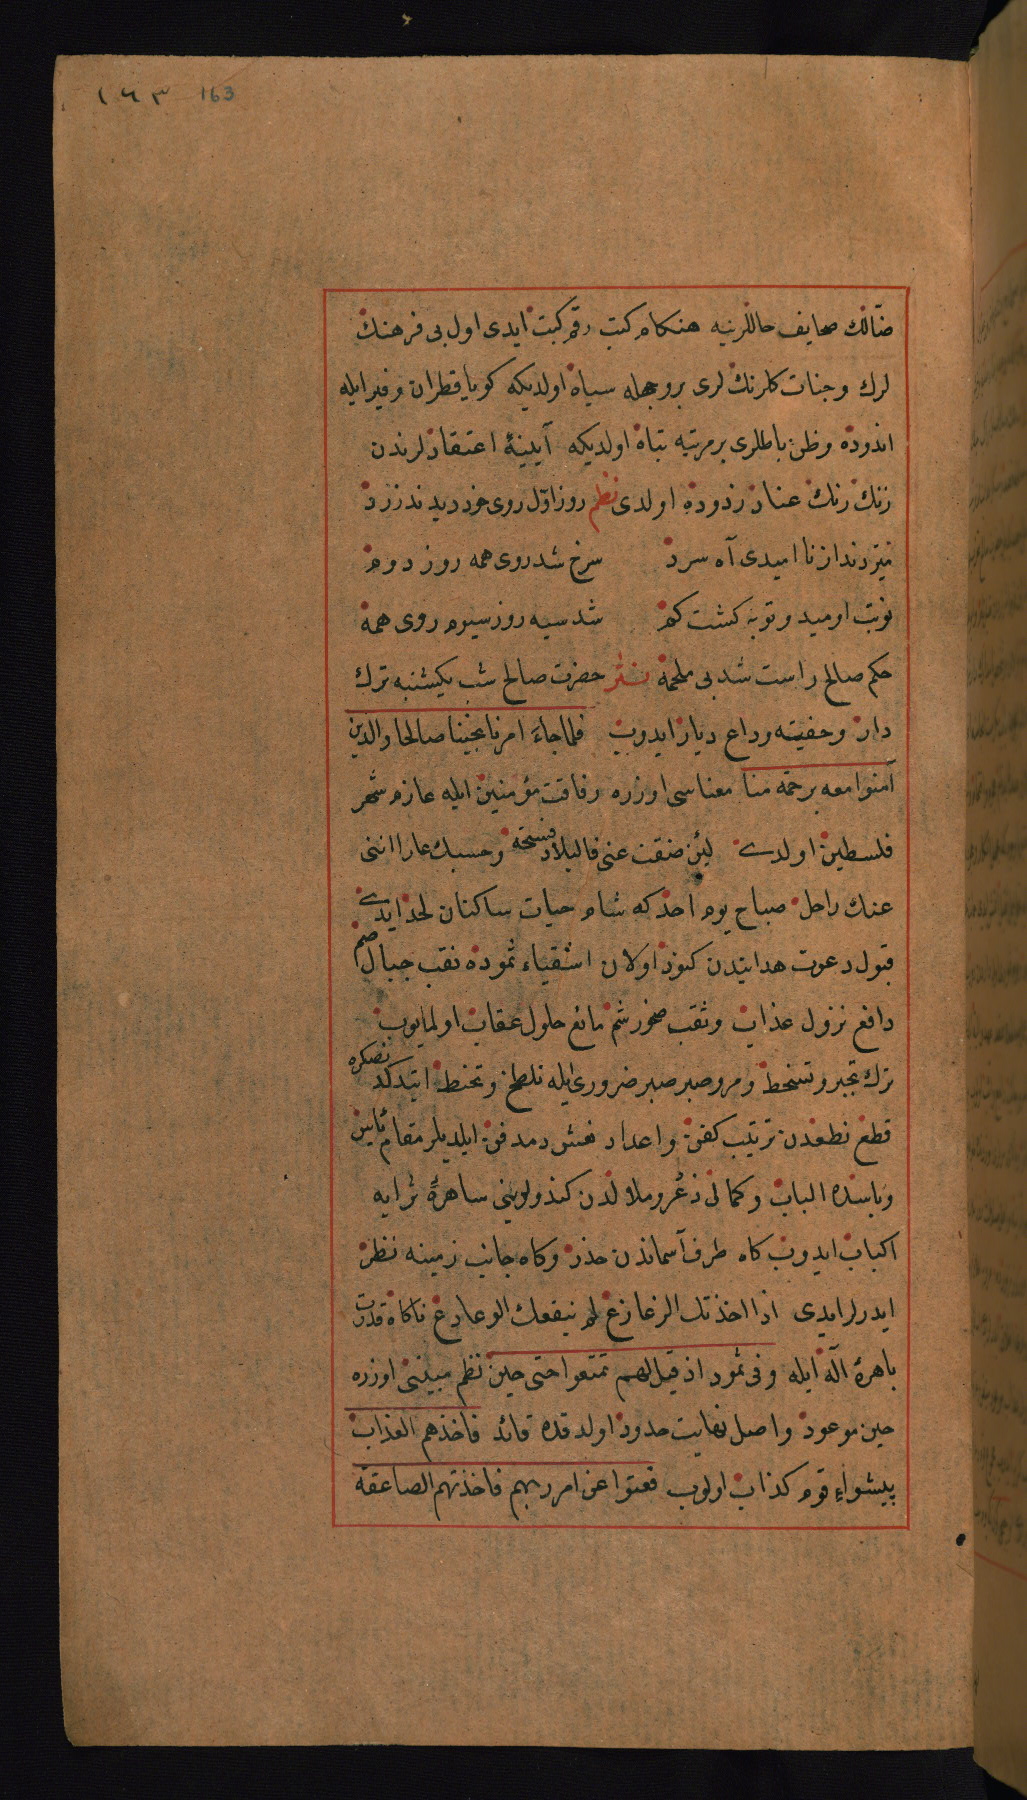 ١٦٣ 163
ضالك صحايف حاللرينه هنكام كبت رقم كبت ايدى اول بى فرهنك
لرك وجنات كلرنك لرى بروجهله سياه اولديكه كويا قطران و قير ايله
اندوده وظن باطللرى بر مرتبه تباه اولديكه آيينهٔ اعتقادلرندن
زنك رنك عناد زدوده اولدى نظم روز اول روى خود ديدند زرد
ميزدند از نا اميدى آه سرد سرخ شد روى همه روز دوم
نوبت اوميد و توبه كشت كم شد سيه روز سيوم روى همه
حكم صالح راست شد بى ملحمه نثر حضرت صالح شب يكشنبه ترك
دار وحفيته وداع ديار ايدوب فلما جاء امرنا نجينا صالحا والذين
آمنوا معه برحمة منا معناسى اوزره رفاقت مؤمنين ايله عازم شهر
فلسطين اولدى لئن ضقت عنى فالبلاد فسيحة وحسبك عارا اننى
عنك راحل صباح يوم احد كه شام حيات ساكنان لحد ايدى
قبول دعوت هدايتدن كنود اولان اشقياء ثموده نقب جبال صم
دافع نزول عذاب وثقب صخور شم مانع حلول عقاب اولمايوب
ترك تجبر وتسخط ومر وصبر صبر ضرورى ايله تلطخ وتحنط ايتدكدنصكره
قطع نطعدن ترتيب كفن واعداد نعش ومدفن ايلديلر مقام
اكباب ايدوب كاه طرف آسماندن حذر وكاه جانب زمينه نظر
ايدرلر ايدى اذا اخذتك الزعازع لم ينفعك الوعاوع ناكاه قدرت
باهرهٔ اله ايله وفى ثمود اذ قيل لهم تمتعوا حتى حين نظم مبينى اوزره
حين موعود واصل نهايت حدود اولدقده قائد فاخذهم العذاب
پيشواء قوم كذاب اولوب فعتوا عن امر ربهم فاخذتهم الصاعقة